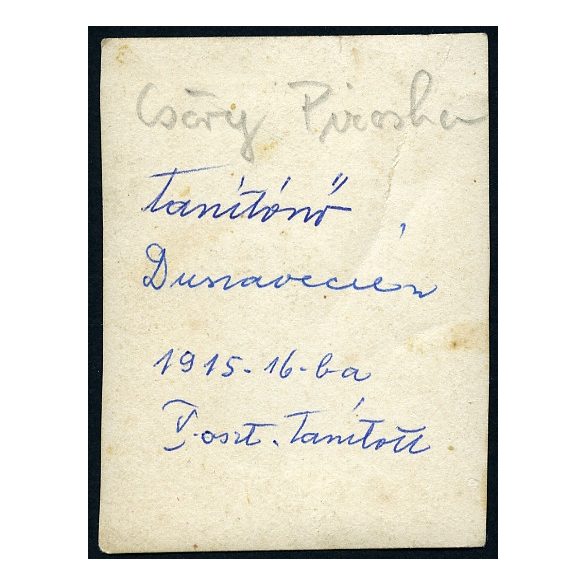 Csáry Piroska
Tanítónő
Dunavecsén
1915-16-ba
V. oszt. Tanított